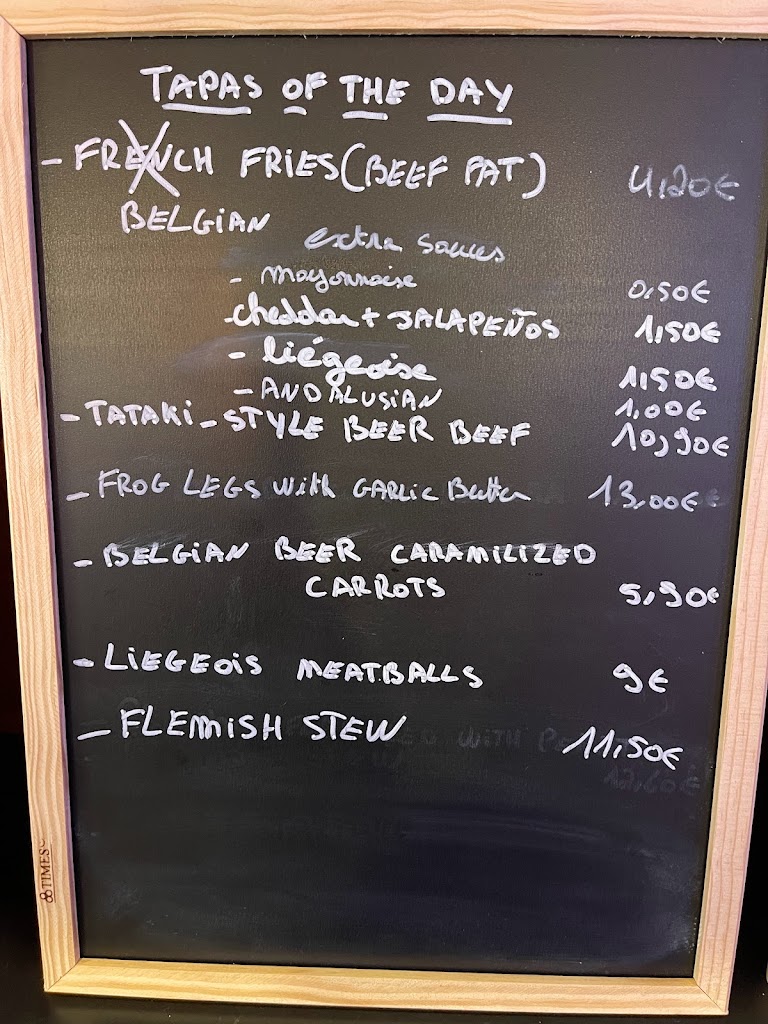 TAPAS OF THE DAY
- FRENCH FRIES (BEEF FAT) 4,20€
BELGIAN
extra sauces
- mayonnaise 0,50€
- cheddar + JALAPEÑOS 1,50€
- liégeoise 1,50€
- ANDALUSIAN 1,00€
- TATAKI-STYLE BEER BEEF 10,90€
- FROG LEGS with GARLIC Butter 13,00€
- BELGIAN BEER CARAMILIZED
CARROTS 5,90€
- LIEGEOIS MEATBALLS 9€
- FLEMISH STEW 11,50€
WITH
12,60€
TIMES